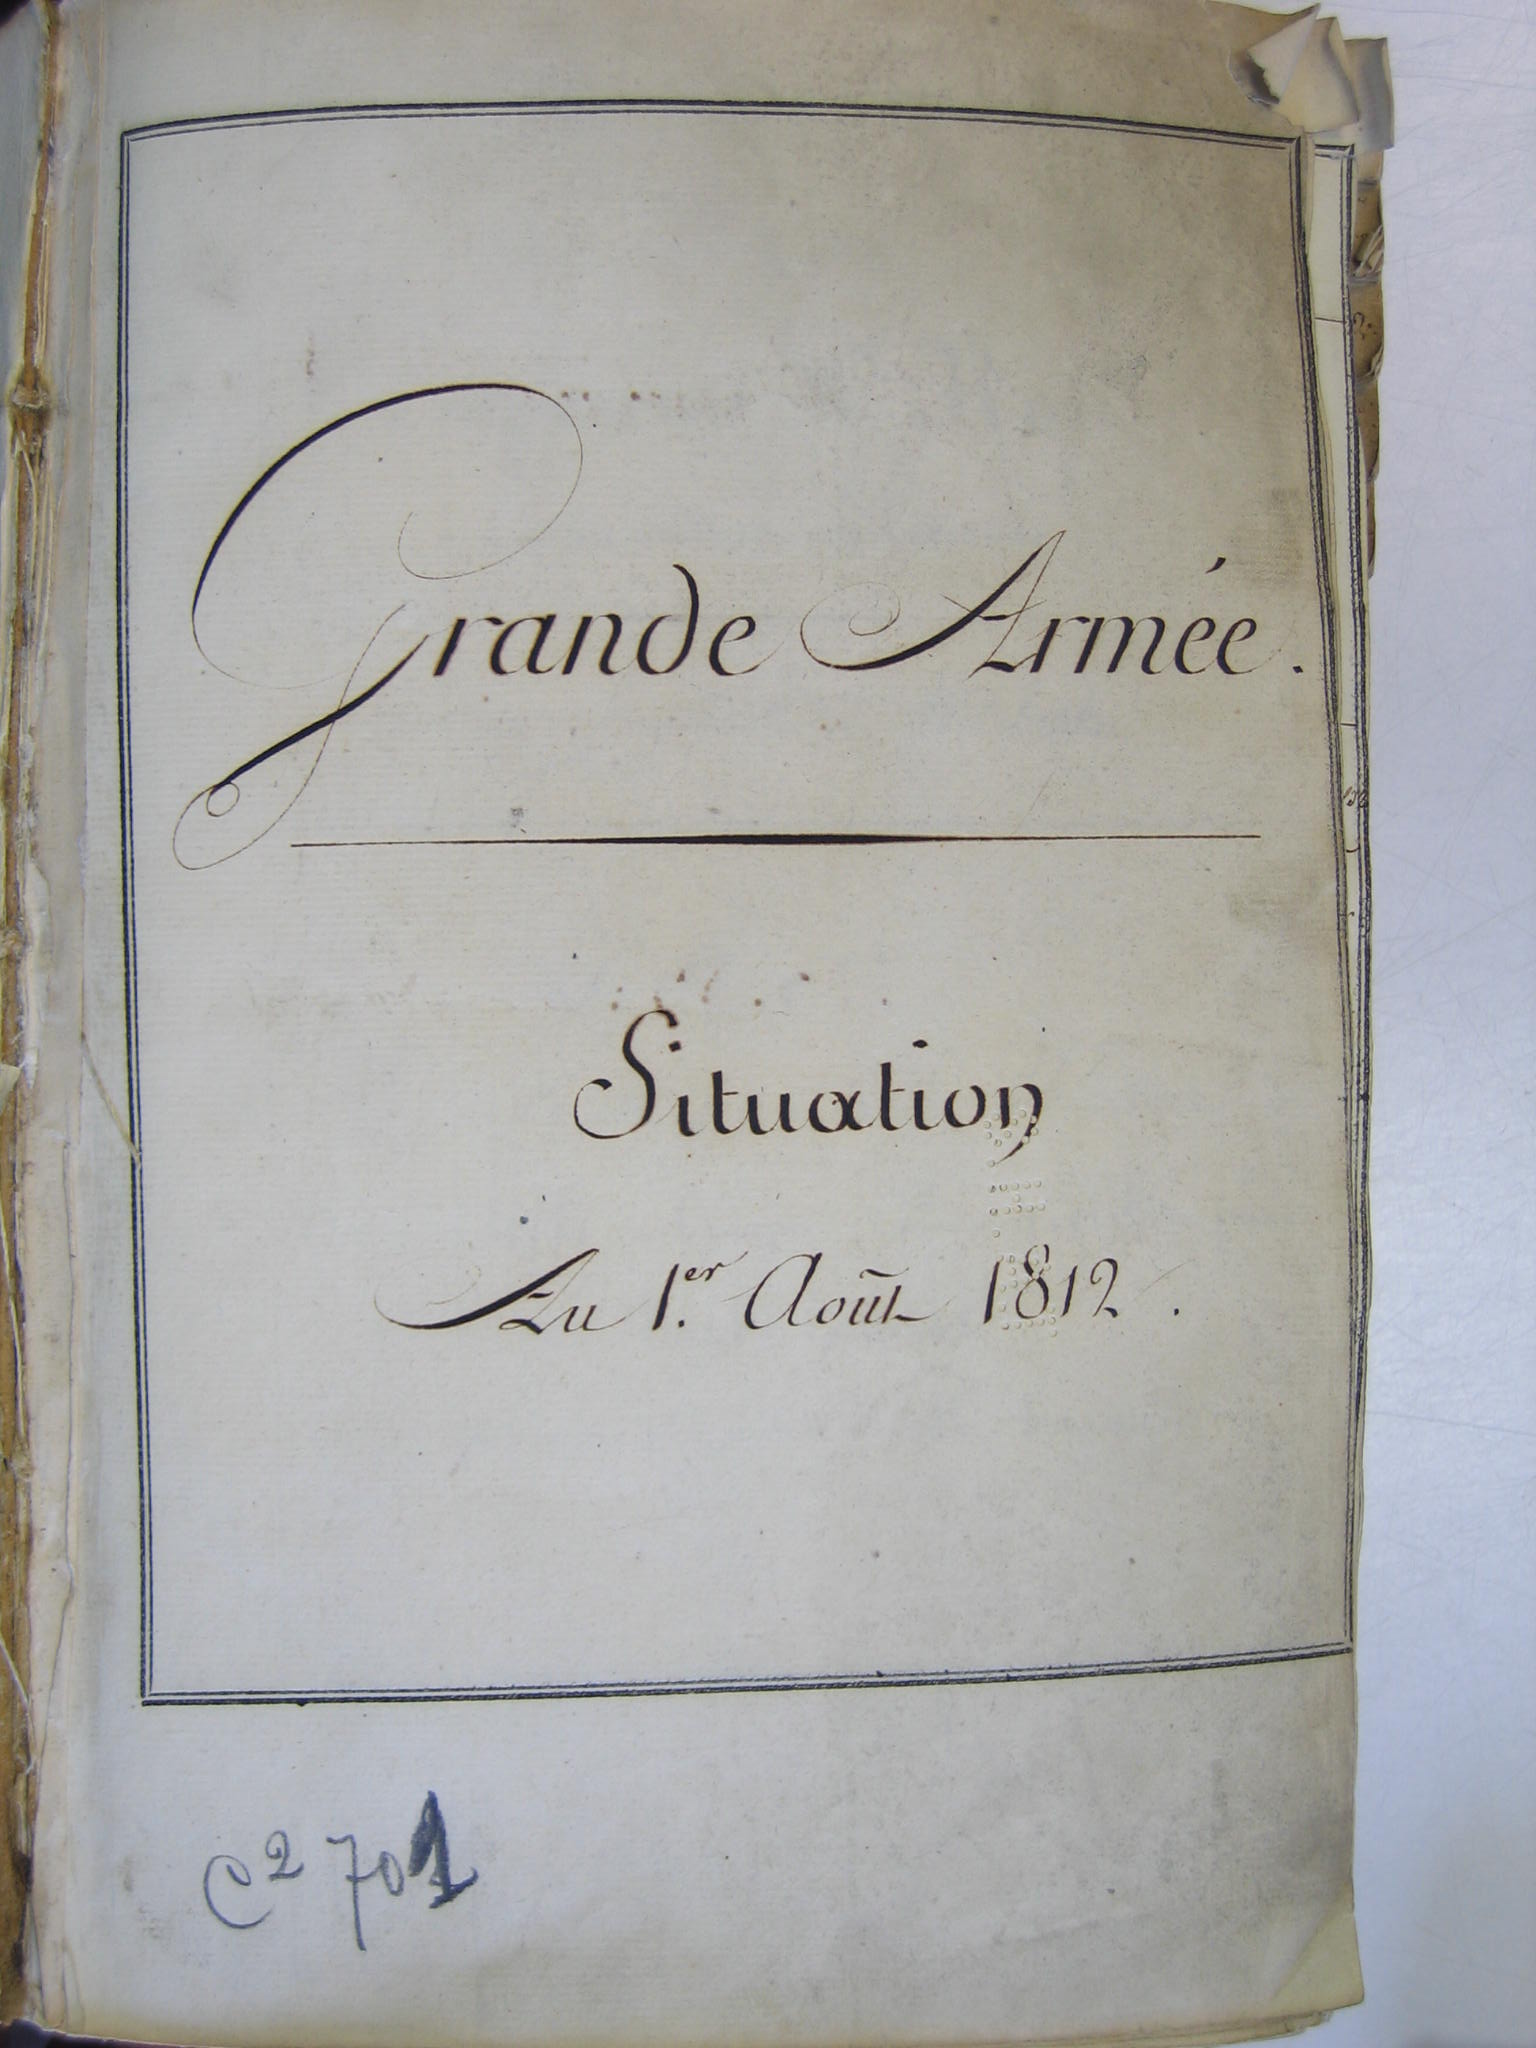 Grande Armée.
Situation
Au 1.er Août 1812.
C2 701